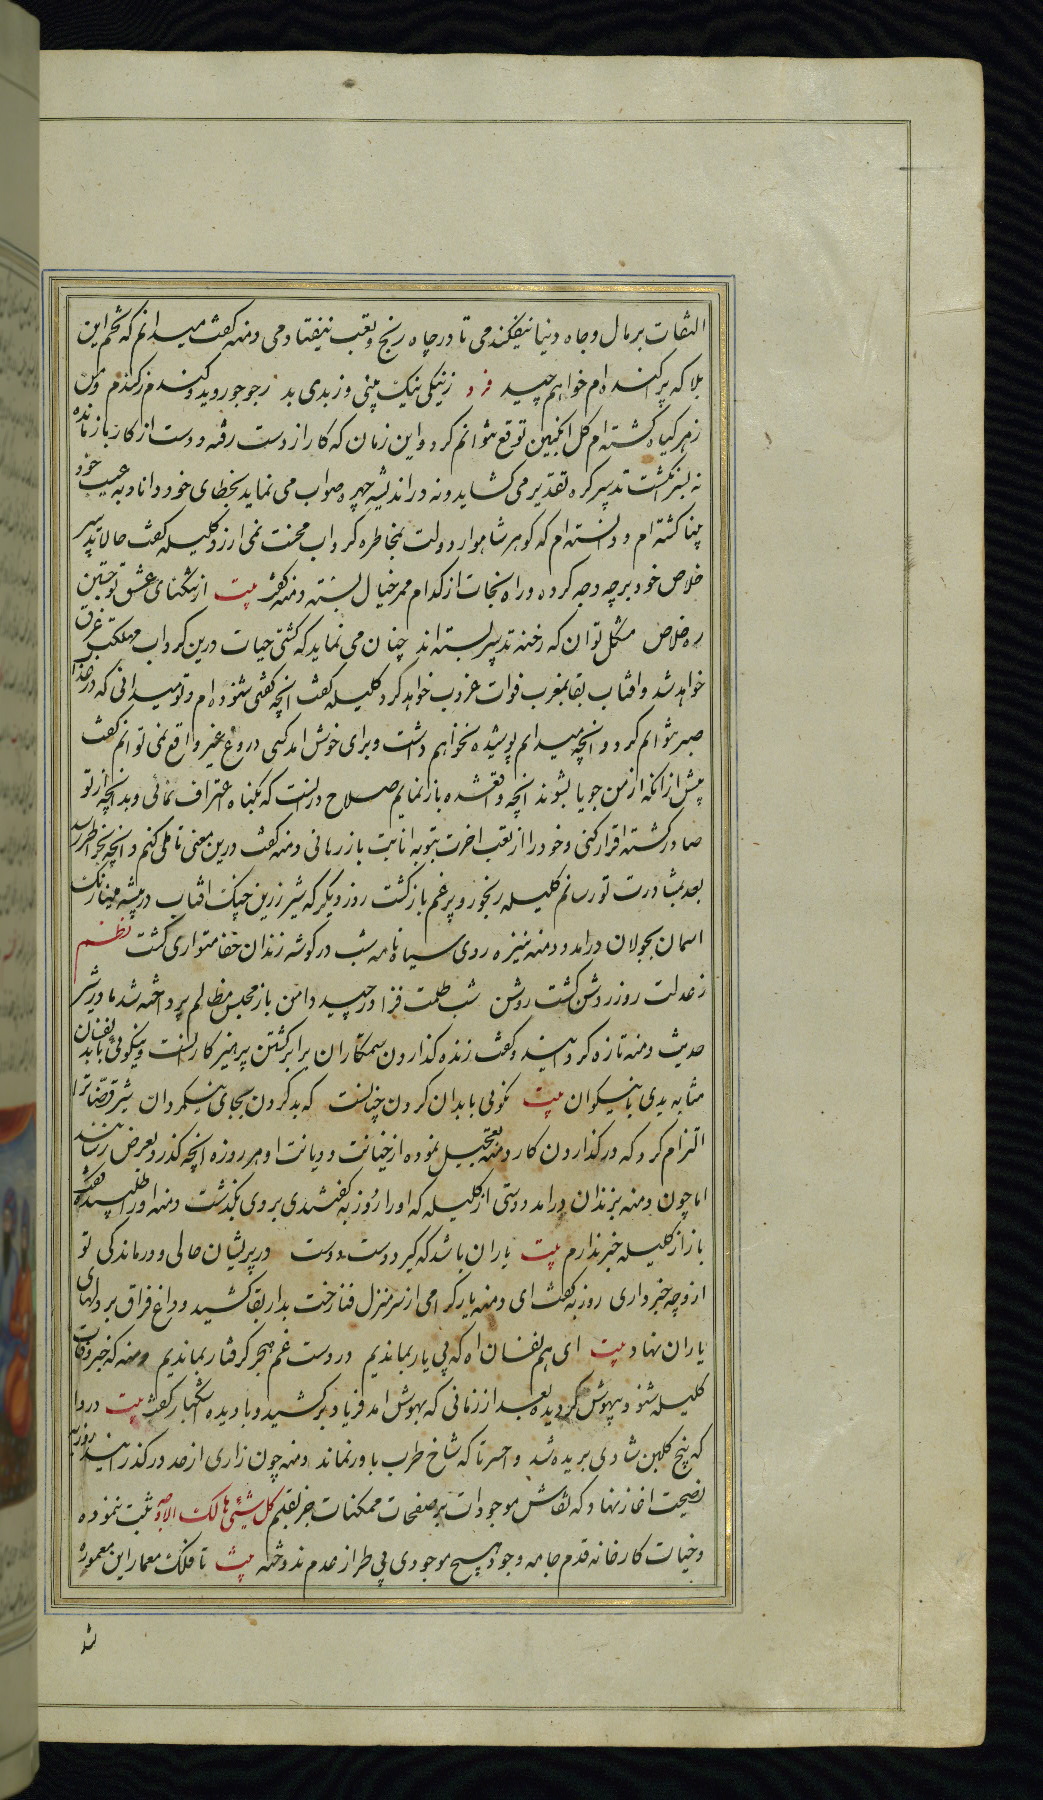 التفات بر مال و جاه دنیا نیفکندمی تا در چاه رنج و تعب نیفتادمی دمنه گفت میدانم که تخم این
بلا که پراکنده‌ام خواهم چید فرد ز نیکی نیک بینی وز بدی بد ز جو جو روید و گندم ز گندم و من
زهر گیاه کشته‌ام گل انگبین توقع نتوانم کرد و این زمان که کار از دست رفته و دست از کار باز مانده
نه بسر انگشت تدبیر گره تقدیر می کشاید و نه در اندیشه چهره صواب می نماید بخطای خود دانا و به عیب خود
بینا کشته‌ام و دانسته‌ام که گوهر شاهوار دولت بمخاطره گرداب محنت نمی ارزد کلیله گفت حالا تدبیر
خلاص خود بر چه وجه کرده و راه نجات از کدام ممر خیال بسته دمنه گفت بیت از تنگنای عشق تو جستن
ره خلاص مشکل توان که رخنه تدبیر بسته‌اند چنان می نماید که کشتی حیات درین گرداب مهلکه غرق
خواهد شد و افتاب بقا بمغرب فوات غروب خواهد کرد کلیله گفت انچه گفتی شنوده‌ام و تو میدانی که در عذاب
صبر نتوانم کرد و انچه میدانم پوشیده نخواهم داشت و برای خوش امد کسی دروغ غیر واقع نمی توانم گفت
پیش از انکه از من جویا بشوند انچه واقعشده باز نمایم صلاح در انست که بگناه اعتراف نمائی و بد انچه از تو
صادر گشته اقرار کنی و خود را از تعب اخرت بتوبه انابت باز رهانی دمنه گفت درین معنی تاملی کنم و انچه بخاطر رسد
بعد بمشاورت تو رسانم کلیله رنجور و پر غم باز گشت روز دیگر که شیر زرین چنگ افتاب در بیشه مینا رنگ
اسمان بجولان درامد و دمنه تیره روی سیاه نامه شب در گوشه زندان خفا متواری گشت نظم
ز عدلت روز روشن گشت روشن شب ظلمت فزا در چید دامن باز مجلس مظالم پرداخته شد مادر شیر
حدیث دمنه تازه گردانید و گفت زنده گذاردن ستمکاران برابر کشتن پرهیز کارانست و نیکوئی با بدان
مثابه بدی با نیکوان بیت نکوئی با بدان کردن چنانست که بد کردن بجای نیکمردان شیر قضات را
التزام کرد که در گذاردن کار دمنه تعجیل نموده از خیانت و دیانت او هر روزه انچه گذرد بعرض رسانند
اما چون دمنه بزندان درامد دوستی از کلیله که او را روزبه گفتندی بر وی بگذشت دمنه او را طلبیده گفت
باز از کلیله خبر ندارم بیت یار ان باشد که گیرد دست دوست در پریشان حالی و درماندگی تو
از وچه خبر داری روزبه گفت ای دمنه یار گرامی از سر منزل فنا رخت بدار بقا کشید و داغ فراق بر دلهای
یاران نهاد بیت ای هم نفسان اه که بی یار بماندیم در دست غم هجر گرفتار بماندیم دمنه که خبر وفات
کلیله شنود بیهوش گردیده بعد از زمانی که بهوش امد فریاد برکشید و با دیده اشکبار گفت بیت دردا
که بیخ گلبن شادی بریده شد واحسرتا که شاخ طرب باورنماند دمنه چون زاری از حد در گذرانید روزبه
نصیحت اغاز نهاد که نقاش موجودات بر صفحات ممکنات جز بقلم کل شیئ هالک الا وجهه ثبت ننموده
و خیات کارخانه قدم جامه وجود هیچ موجودی بی طراز عدم ندوخته بیت تا فلک معمار این معموره
شد